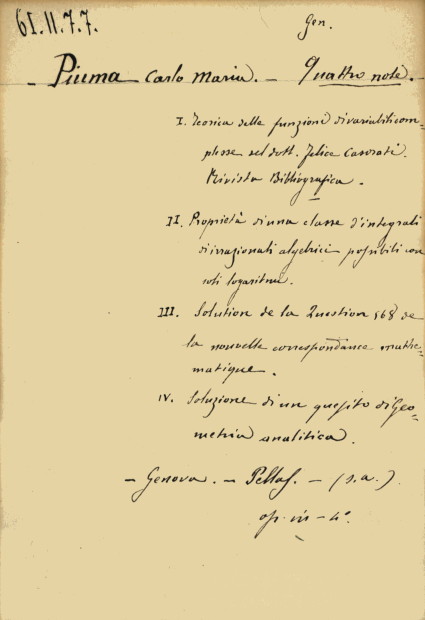 61.II.7.7.
Gen.
Piuma Carlo Maria. — Quattro note. —
I. Teorica delle funzioni di variabili com=
plesse del dott. Felice Casorati.
Rivista Bibliografica.
II. Proprietà di una classe d'integrali
di irrazionali algebrici possibili con
soli logaritmi.
III. Solution de la Question 568 de
la nouvelle correspondance mathe=
matique.
IV. Soluzione di un quesito di Geo=
metria analitica.
— Genova. — Pellas. — (s.a.)
op. in — 4°.